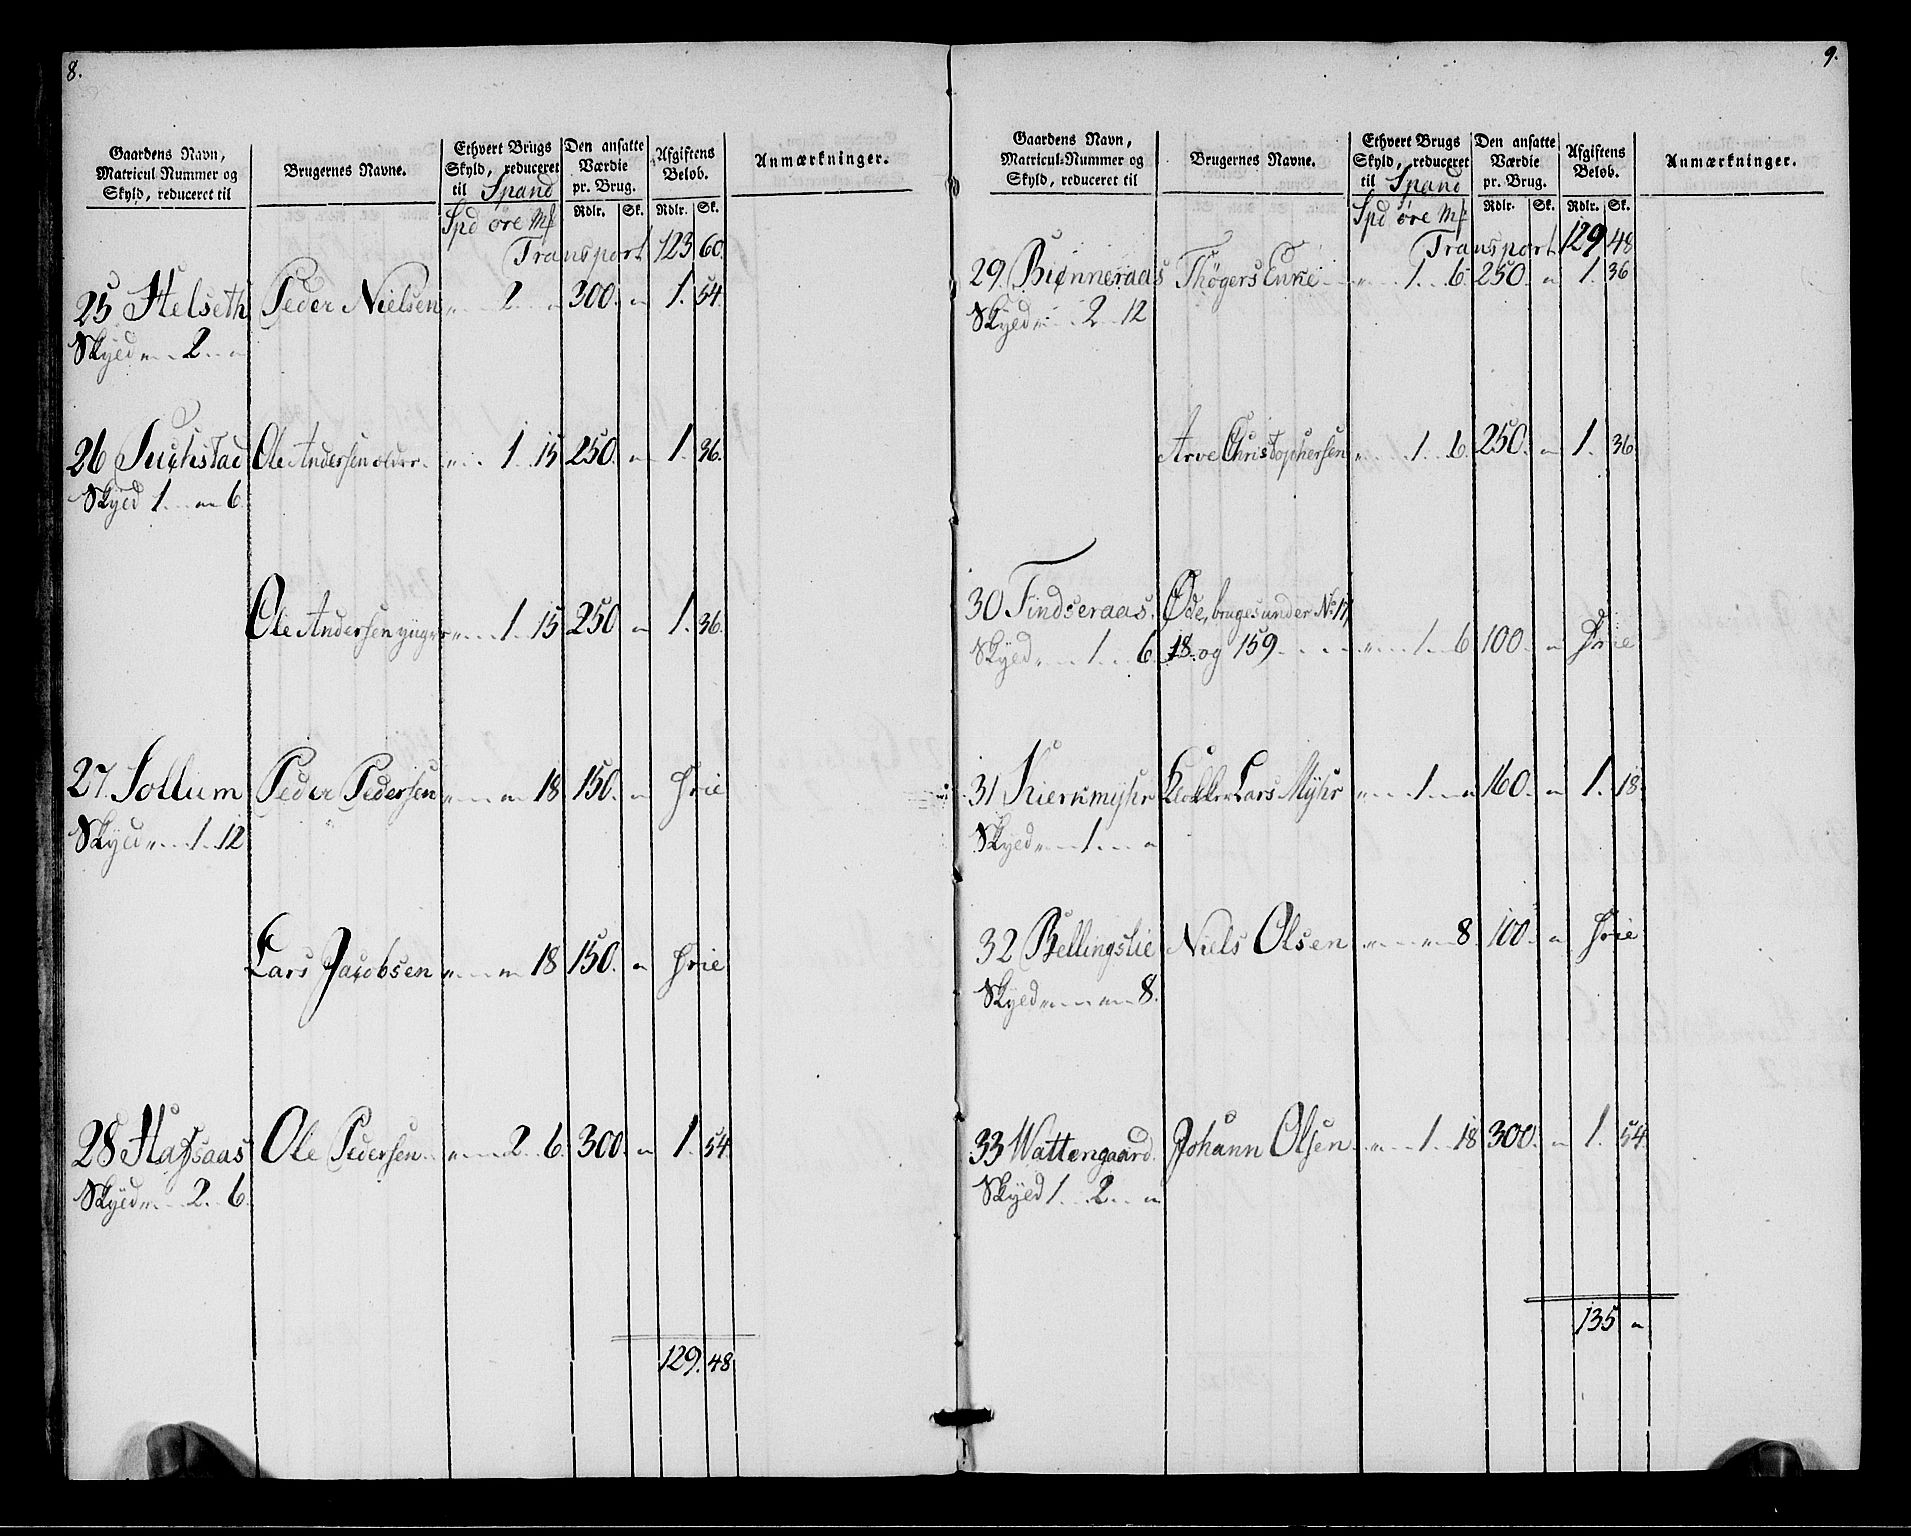 8.
Gaardens Navn, Matricul-Nummer og Skyld, reduceret til
Brugernes Navne.
Ethvert Brugs Skyld, reduceret til Spand
Den ansatte Værdie pr. Brug.
Afgiftens Beløb.
Anmærkninger.
Rdlr. Sk. Rdlr. Sk.
Spd øre M
Transport 123 60.
25 Helseth Peder Nielsen „ 2 „ 300. „ 1. 54.
Skyld „ 2 „
26 Ole Andersen older „ 1 15 250. „ 1. 36.
Skyld 1 „ 6.
Ole Andersen ynger „ 1. 15 250 „ 1. 36.
27. Sollum Peder Pedersen „ „ 18 150. „ frie
Skyld „ 1. 12
Lars Jacobsen „ „ 18 150. „ frie
28 Hafsaas Ole Pedersen „ 2 6. 300. „ 1. 54.
Skyld „ 2. 6.
129. 48
9.
Gaardens Navn, Matricul-Nummer og Skyld, reduceret til
Brugernes Navne.
Ethvert Brugs Skyld, reduceret til Spand
Den ansatte Værdie pr. Brug.
Afgiftens Beløb.
Anmærkninger.
Rdlr. Sk. Rdlr. Sk.
Spd øre M
Transport 129 48
29. Biønneraas Thøgers Enke „ 1. 6. 250. „ 1. 36
Skyld „ 2 12
Arve Christophersen „ 1. 6. 250. „ 1. 36.
30 Findseraas. Øde, bruges under No. 17,
Skyld „ 1. 6. 18. og 159 „ 1. 6 100. „ frie
31 Kierkmyhr Klokker Lars Myhr „ 1. „ 160. „ 1. 18.
Skyld „ 1. „
32 Bellingslie Niels Olsen „ „ 8. 100. „ frie
Skyld „ „ 8.
33 Wattengaard. Johann Olsen „ 1. 18 300. „ 1. 54.
Skyld 1. 2. „
135 „